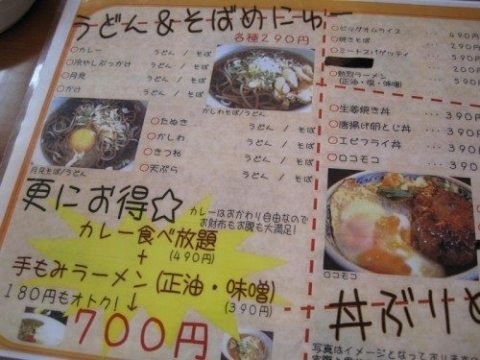 うどん&そばめにゅー
各種290円
○カレー うどん / そば
○冷やしぶっかけ うどん / そば
○月見 うどん / そば
○かけ うどん / そば
かしわそば/うどん
○たぬき うどん / そば
○かしわ うどん / そば
○きつね うどん / そば
○天ぷら うどん / そば
月見そば/うどん
更にお得☆
カレーはおかわり自由なので
お財布もお腹も大満足!
カレー食べ放題
(490円)
+
手もみラーメン(正油・味噌)
(390円)
180円もオトク!
700円
○ビッグオムライス 490円
○焼きそば
○ミートスパゲッティ
(正油・塩・味噌)
○生姜焼き丼 ... 390円
○唐揚げ卵とじ丼 ... 390円
○エビフライ丼 ... 390円
○ロコモコ ... 390円
ロコモコ
丼ぶりめ
写真はイメージとなっております